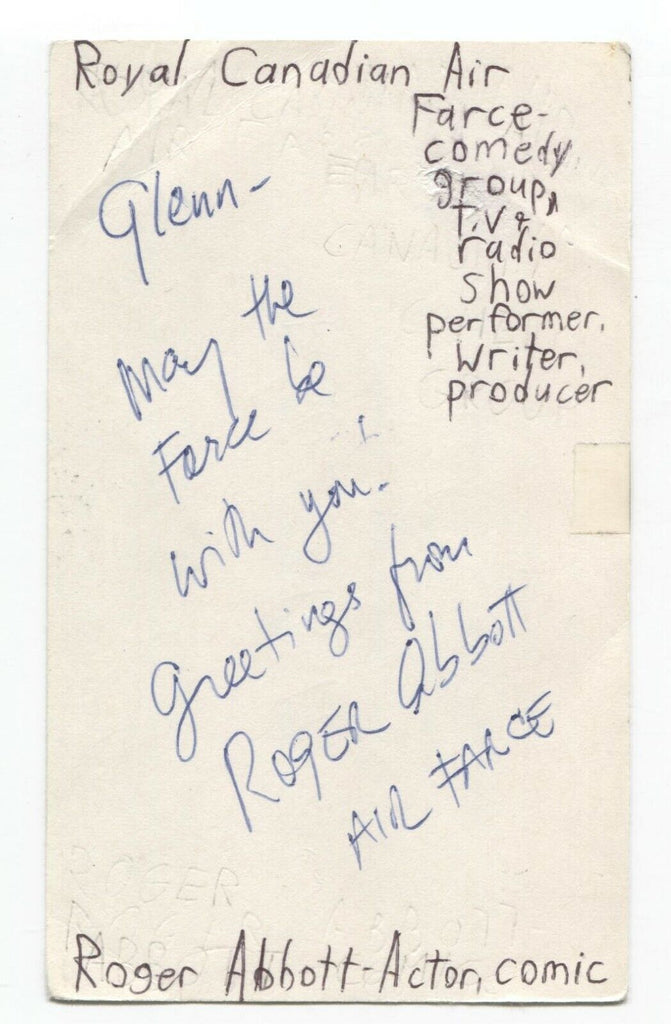 Royal Canadian Air
Farce-
comedy
group,
T.V &
radio
show
performer,
writer,
producer
Glenn-
May the
Farce be
with you!
Greetings from
ROGER Abbott
AIR FARCE
ROGER
Roger Abbott-Actor, comic